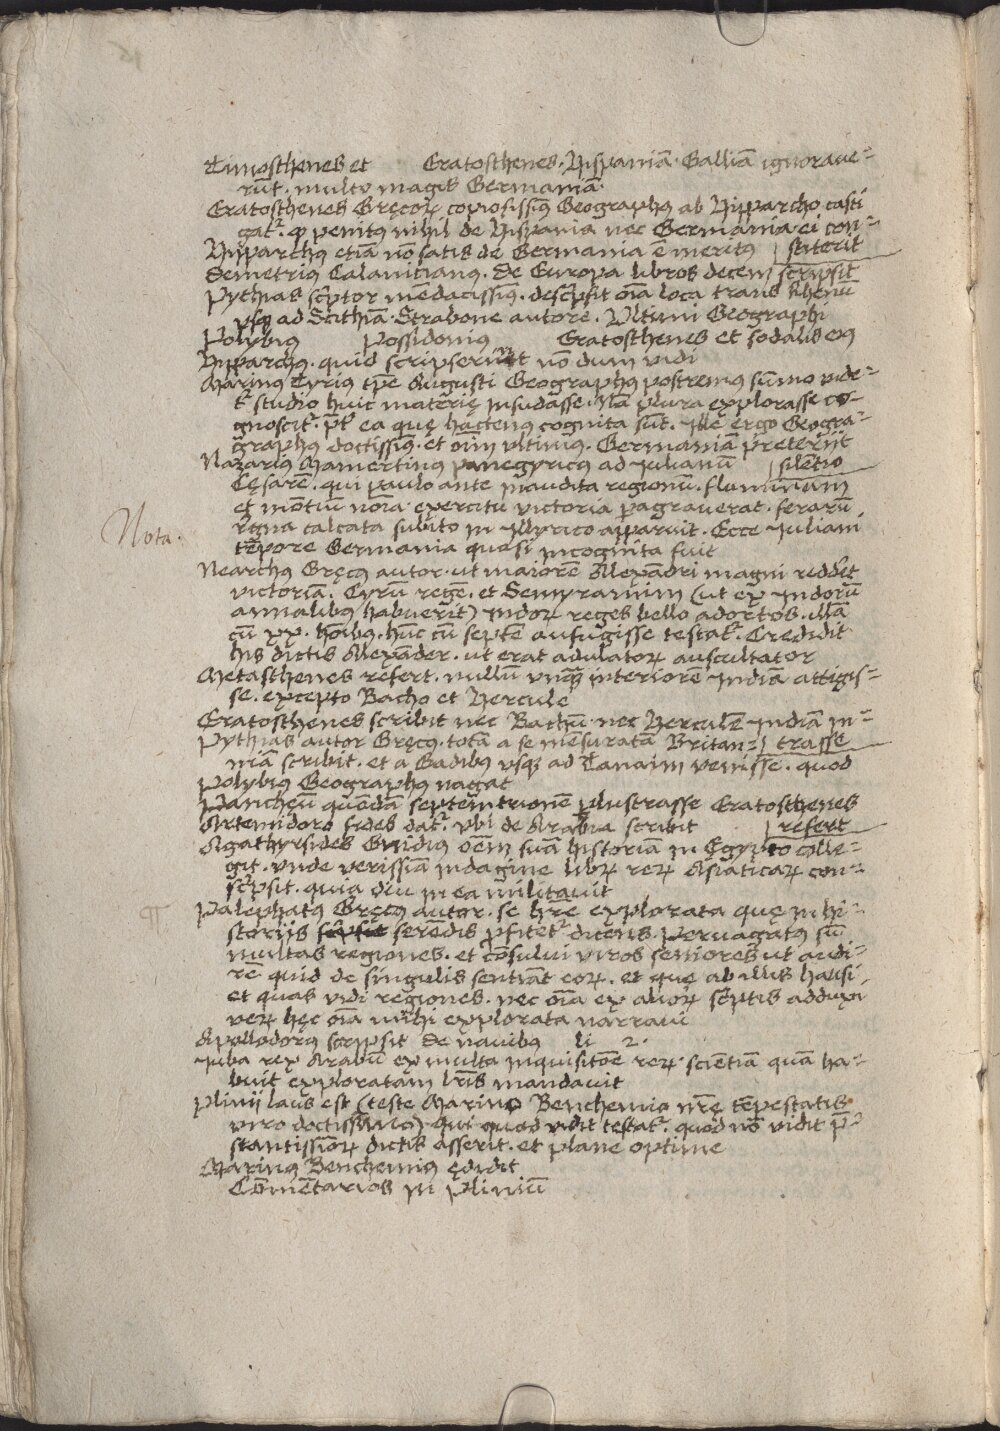 Timosthenes et Eratosthenes. Hispaniā. Galliā ignoraue-
rūt. multo magis Germaniā.
Eratosthenes Gręcoꝝ copiosissimꝰ Geographꝰ ab Hipparcho casti
gatʳ. ꝙ penitꝰ nihil de Hispania nec Germania ei con-
Hipparchꝰ etiā nō satis de Germania ē meritꝰ | stiterit
Demetriꝰ Calanicianꝰ. De Europa libros decem scripsit
Pythias sc̄ptor mēdacissimꝰ. desc̄psit oīa loca trans Rhenū
vsqꝫ ad Scithiā. Strabone autore. Vltimi Geographi
Polybiꝰ Possidoniꝰ Eratosthenes et sodalis eiꝰ
Hipparchꝰ. quid scripserint nō dum vidi
Marinꝰ Tyriꝰ tp̄e Augusti Geographꝰ postremꝰ sūmo vide-
tʳ studio huic materię insudasse. Nā plura explorasse co-
gnoscitʳ. p̄tʳ ea quę hactenꝰ cognita sūt. Ille ergo Geogra-
graphꝰ doctissimꝰ. et oīm vltimꝰ. Germaniā pręterijt
Nazariꝰ Mamertinꝰ panegyricꝰ ad Iulianū | silentio
Cęsarē. qui paulo ante inaudita regionū. fluminum
et mōtiū noīa. exercitu victoria pagrauerat. ferarū
regna calcata subito in Illyrico apparuit. Ecce Iuliani
Nota.
tēpore Germania quasi incognita fuit
Nearchꝰ Gręcꝰ autor. ut maiorē Alexādri magni redderet
victoriā. Cyrū regē. et Semyramim (ut ex Indorū
annalibꝰ habuerit) Indoꝝ reges bello adortos. illā
cū xx. hoībꝰ. hūc cū septē aufugisse testatʳ. Credidit
his dictis Alexāder. ut erat adulatoꝝ auscultator
Metasthenes refert. nullū vnqꝫ interiorē Indiā attigis-
se. excepto Bacho et Hercule
Eratosthenes scribit nec Bachū. nec Herculē Indiā in-
Pythias autor Gręcꝰ. totā a se mēsuratā Britan- | trasse
niā scribit. et a Gadibꝰ vsqꝫ ad Tanaim venisse. quod
Polybiꝰ Geographꝰ nagat
Pancheū quēdā septemtrionē plustrasse Eratosthenes
Artemidoro fides datʳ. vbi de Arabia scribit | refert
Agathyrsides Gnidiꝰ oēm suā historiā in Egypto colle-
git. vnde verissimā indagine libꝝ reꝝ Asiaticaꝝ con-
sc̄psit. quia diu in ea militauit
Palephatꝰ Gręcꝰ autor. se hr̄e explorata quę in hi-
storijs serēdis ꝓfitetʳ dicens. Peruagatꝰ sū
multas regiones. et cōsului viros seniores ut audi-
rē quid de singulis sentiāt eoꝝ. et quę ab illis hausi.
et quas vidi regiones. nec oīa ex alioꝝ sc̄ptis adduxi
veꝝ hęc oīa mihi explorata narraui
Apollodorꝰ scripsit De nauibꝰ li 2.
Iuba rex Arabū ex multa inquisitōe reꝝ. scientiā quā ha-
buit exploratam lr̄is mandauit
Plinij laus est (teste Marino Benchemio nr̄ę tēpestatis
viro doctissimo) qui quod vidit testatʳ. quod nō vidit p̄-
stantissimoꝝ dictis asserit. et plane optime
Marinꝰ Benchemiꝰ ędidit
Cōmētarios in Pliniū